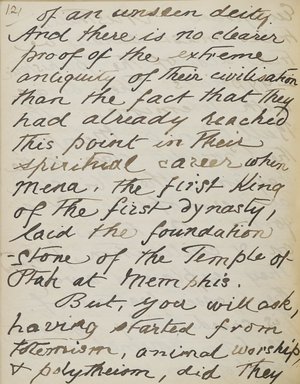 12)
of an unseen deity.
And there is no clearer
proof of the extreme
antiquity of their civilisation
than the fact that they
had already reached
this point in their
spiritual career when
Mena, the first King
of the first dynasty,
laid the foundation
-stone of the Temple of
Ptah at Memphis.
But, you will ask,
having started from
totemism, animal worship,
& polytheism, did they